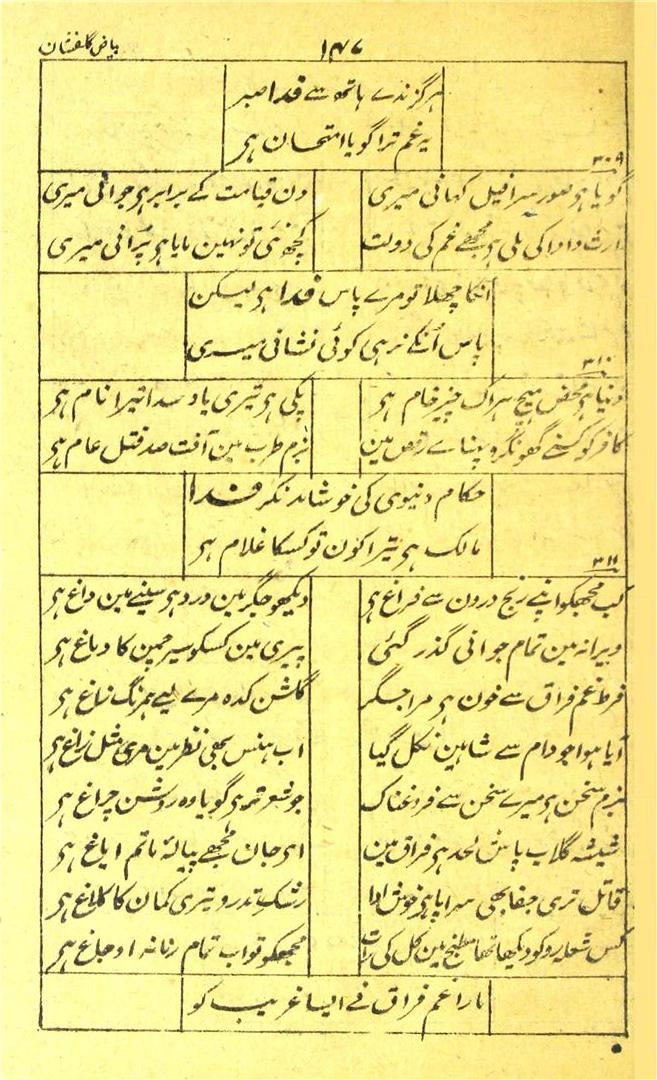 بیاض گلفشان
۱۴۷
ہرگز ندے ہاتھ سے فدا صبر
یہ غم ترا گویا امتحان ہی
۳۰۹
گویا ہو صور سرافیل کہانی میری دن قیامت کے برابر ہو جوانی میری
ارث دادا کی ملی ہو مجھے غم کی دولت کچھ نئی تو نہین مایا ہو پرانی میری
انکا چھلا تو مرے پاس فدا ہو لیکن
پاس اُنکے نرہی کوئی نشانی میری
۳۱۰
دنیا ہو محض ہیچ ہر اک چیز خام ہو پکی ہو تیری یاد سدا تیرا نام ہو
کافر کو کسنے گھونگرو پہنائے رقص مین بزم طرب مین آفت صد قتل عام ہو
حکام دنیوی کی خوشامد نکر فدا
مالک ہو تیرا کون تو کسکا غلام ہو
۳۱۱
کب مجھکو اپنے رنج درون سے فراغ ہو دیکھو جگر مین درد ہو سینے مین داغ ہو
ویرانہ مین تمام جوانی گذر گئی پیری مین کسکو سیر چمن کا دماغ ہو
فرط غم فراق سے خون ہو مرا جگر گلشن کدہ مرے لیے ہمرنگ زاغ ہو
آیا ہوا جو دام سے شاہین نکل گیا اب ہنس بھی نظر مین مری مثل زاغ ہو
بزم سخن ہو میرے سخن سے فروغناک جو شعر تر ہو گویا وہ روشن چراغ ہو
شیشہ گلاب پاش لحد ہو فراق مین ای جان مجھے پیالۂ ماتم ایاغ ہو
قاتل تری جفا بھی سراپا ہو خوش ادا رشک تدرو تیری کمان کا کلاغ ہو
کس شعلہ رو کو دیکھا تھا مطبخ مین کل کی رات مجھکو تو اب تمام زمانہ اوجاغ ہو
مارا غم فراق نے ایسا غریب کو